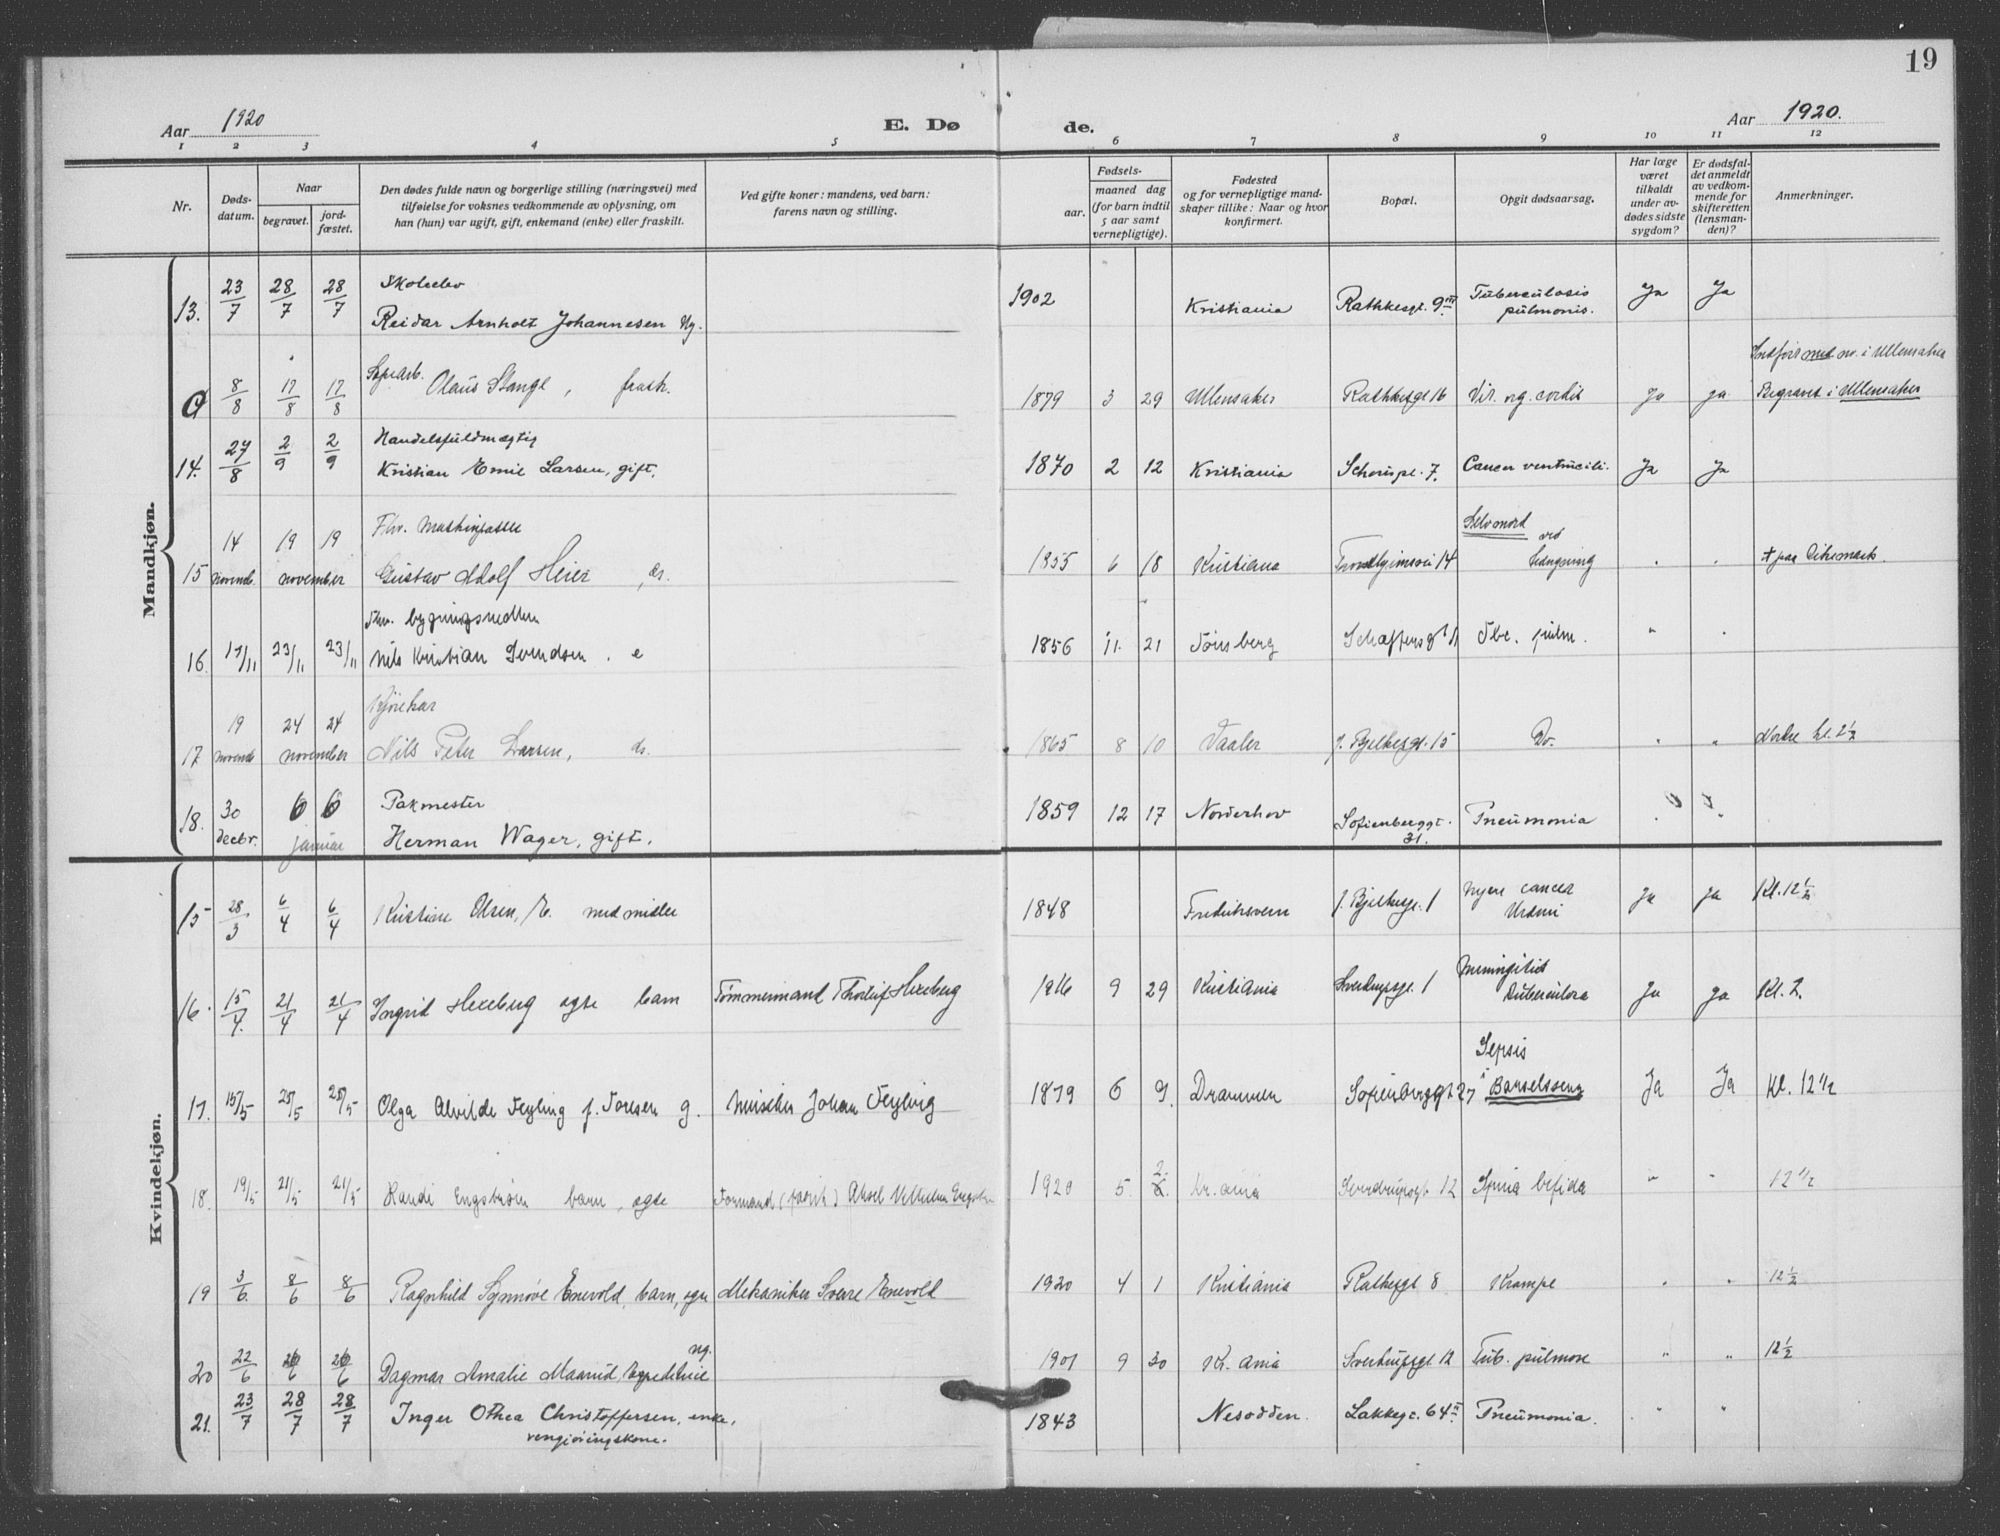 19
Aar 1920
E. Dø de.
Aar 1920.
1 2 3 4 5 6 7 8 9 10 11 12
Nr.
Døds-
datum.
Naar
begravet.
jord-
fæstet.
Den dødes fulde navn og borgerlige stilling (næringsvei) med
tilføielse for voksnes vedkommende av oplysning, om
han (hun) var ugift, gift, enkemand (enke) eller fraskilt.
Ved gifte koner: mandens, ved barn:
farens navn og stilling.
Fødsels-
aar.
maaned dag
(for barn indtil
5 aar samt
vernepligtige).
Fødested
og for vernepligtige mand-
skaper tillike: Naar og hvor
konfirmert.
Bopæl.
Opgit dødsaarsag.
Har læge
været
tilkaldt
under av-
dødes sidste
sygdom?
Er dødsfal-
det anmeldt
av vedkom-
mende for
skifteretten
(lensman-
den)?
Anmerkninger.
Mandkjøn.
13. 23/7 28/7 28/7 Skoleelev
Reidar Arnholt Johannesen Ug. 1902 Kristiania Rathkesgt. 9 III Tuberculosis
pulmonis. Ja Ja
8/8 17/8 17/8 Olaus Stange, frask. 1879 3 29 Ullensaker Rathkesgt 16 Vit. org. cordis Ja ja
Indført med nr. i Ullensaker
Begravet i Ullensaker
14. 27/8 2/9 2/9 Handelsfuldmægtig
Kristian Emil Larsen, gift. 1870 2 12 Kristiania Schouspl. 7. Cancer ventriculi. Ja Ja
15 14 novemb. 19 19 november Fhv. maskinpasser
Gustav Adolf Heier, do. 1855 6 18 Kristiania Trondhjemsvei 14 Selvmord
ved
hængning " " † paa Dikemark.
16. 17/11 23/11 23/11 Fhv.
Nils Kristian Svendsen. e 1856 11. 21 Tønsberg Schæffersgt 11 Tbc. pulm. " "
17 19 novemb 24 24 november Kjørekar
Nils Peter Larsen, do. 1865 8 10 Vaaler J. Bjelkesgt. 15 Do. " " Nordre kl. 2 1/2
18. 30 decbr. 6 6 januar Pakmester
Herman Wager, gift. 1859 12 17 Norderhov Sofienberggt.
31. Pneumonia " "
Kvindekjøn.
15 28/3 6/4 6/4 Kristine Olsen, E. med midler 1848 Fredriksvern J. Bjelkesgt. 1 cancer
Ja ja Kl. 12 1/2
16. 15/4. 21/4 21/4 Ingrid Hexeberg egte barn Tømmermand Thorleif Hexeberg 1916 9 29 Kristiania Sverdrupsgt. 1 Meningitis
tuberculosa Ja ja Kl. 2.
17. 15/5 25/5 25/5 Olga Alvilde Feyling f. Toresen g. musiker Johan Feyling 1879 6 9. Drammen Sofienberggt 27 Sepsis
i Barselsseng Ja Ja Kl. 12 1/2
18. 19/5 21/5 21/5 Randi Engstrøm barn, egte Formand Aksel Vilhelm Engstrøm 1920 5. 2. Kr.ania Sverdrupsgt. 12 Spina bifida " " 12 1/2
19 3/6. 8/6 8/6 Ragnhild Synnøve Enevold, barn, egte Mekaniker Sverre Enevold 1920 4 1 Kristiania Rathkesgt 8 Krampe " " 12 1/2
20 22/6 26/6 26/6 ug.
Dagmar Amalie Maarud, expeditrice 1901 9 30 Kr.ania Sverdrupsgt 12 Tub. pulmon " " 12 1/2
21. 23/7 28/7 28/7 Inger Othea Christoffersen, enke,
rengjøringskone. 1843 Nesodden. Lakkegt. 64 II Pneumonia. " "